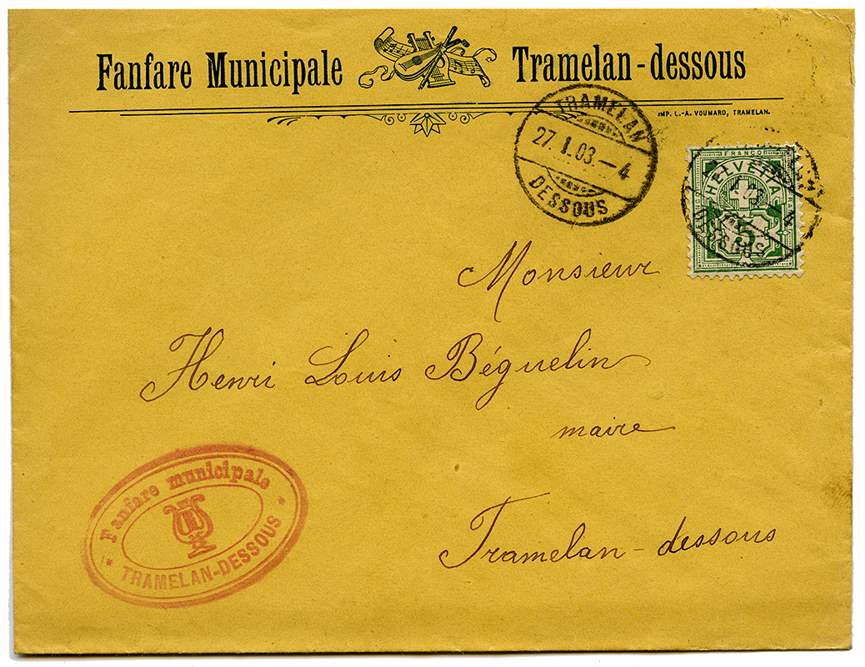 Fanfare Municipale Tramelan-dessous
IMP. L.-A. VOUMARD, TRAMELAN.
TRAMELAN
27. I. 03. – 4
DESSOUS
FRANCO
HELVETIA
5
DESSOUS
Monsieur
Henri Louis Béguelin
maire
Tramelan-dessous
Fanfare municipale
TRAMELAN-DESSOUS